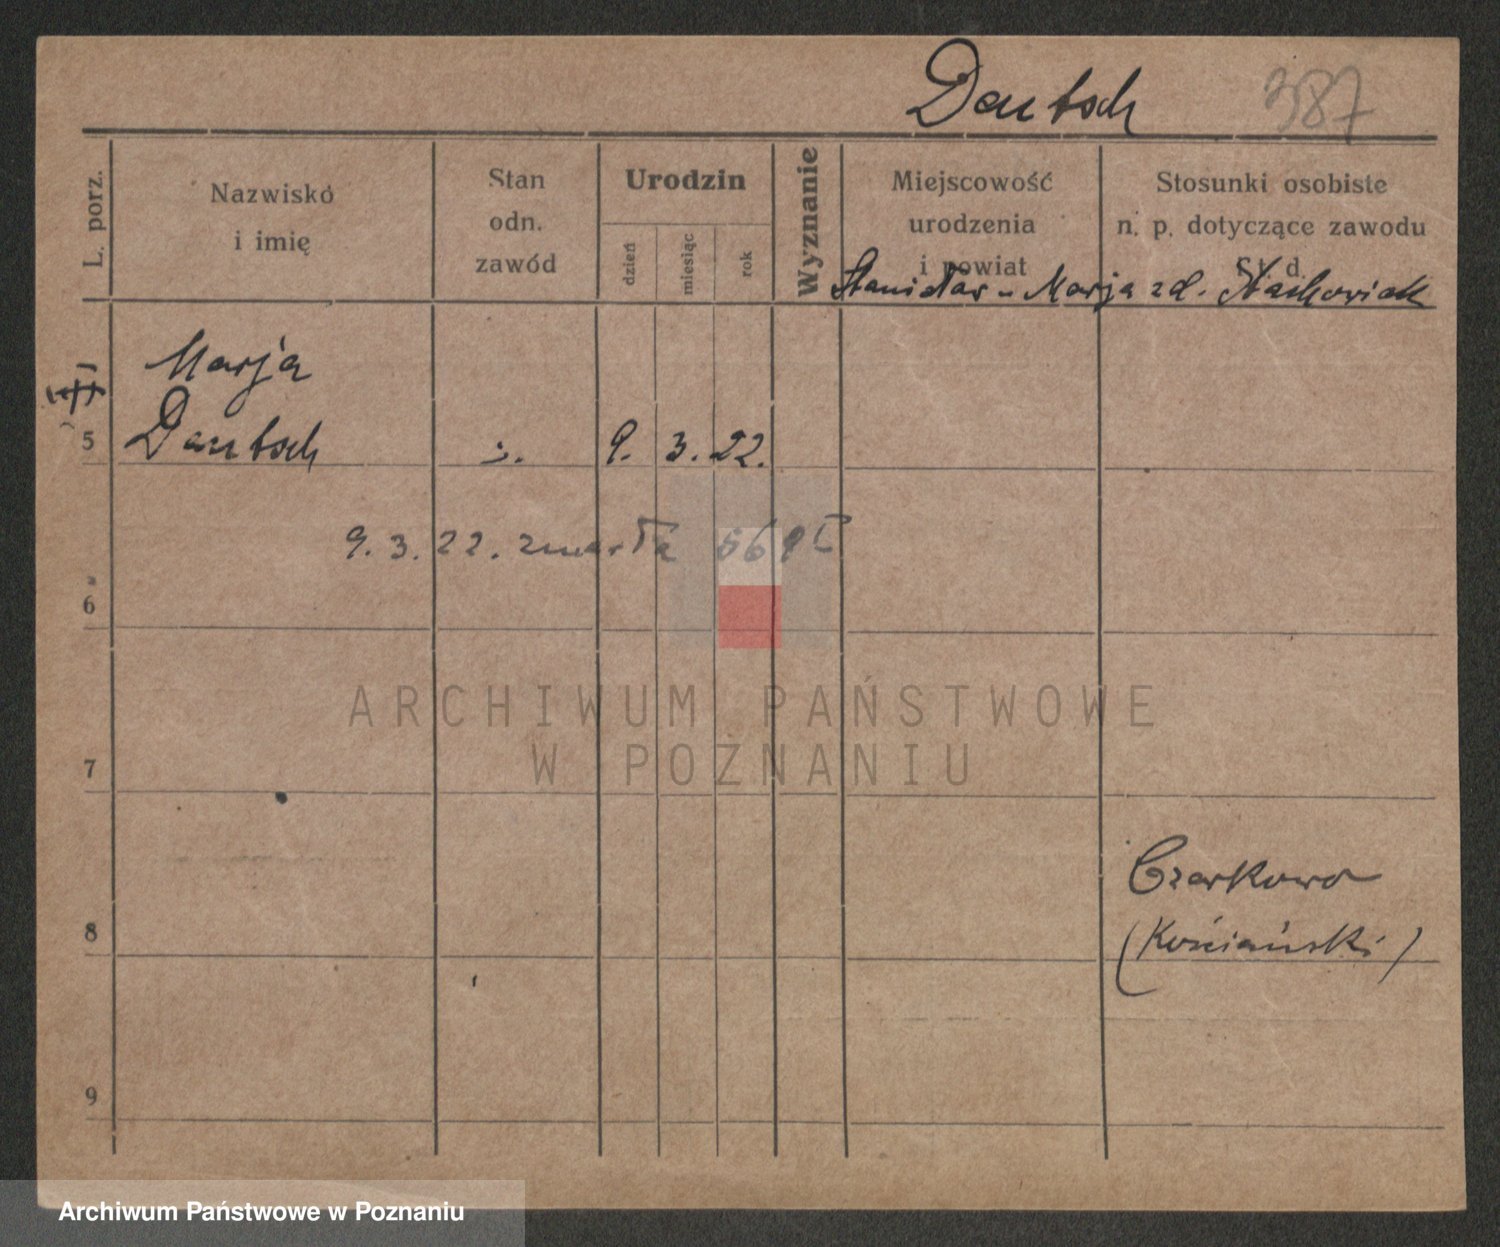 Deutsch 387
L. porz.
Nazwisko
i imię
Stan
odn.
zawód
Urodzin
dzień
miesiąc
rok
Wyznanie
Miejscowość
urodzenia
i powiat
Stosunki osobiste
n. p. dotyczące zawodu
i t. d.
Stanisław - Marja zd.
Marja
5 Deutsch 9. 3. 22.
9. 3. 22. zmarła
6
ARCHIWUM PAŃSTWOWE
W POZNANIU
7
Czarkowo
8 (Kościański)
9
Archiwum Państwowe w Poznaniu